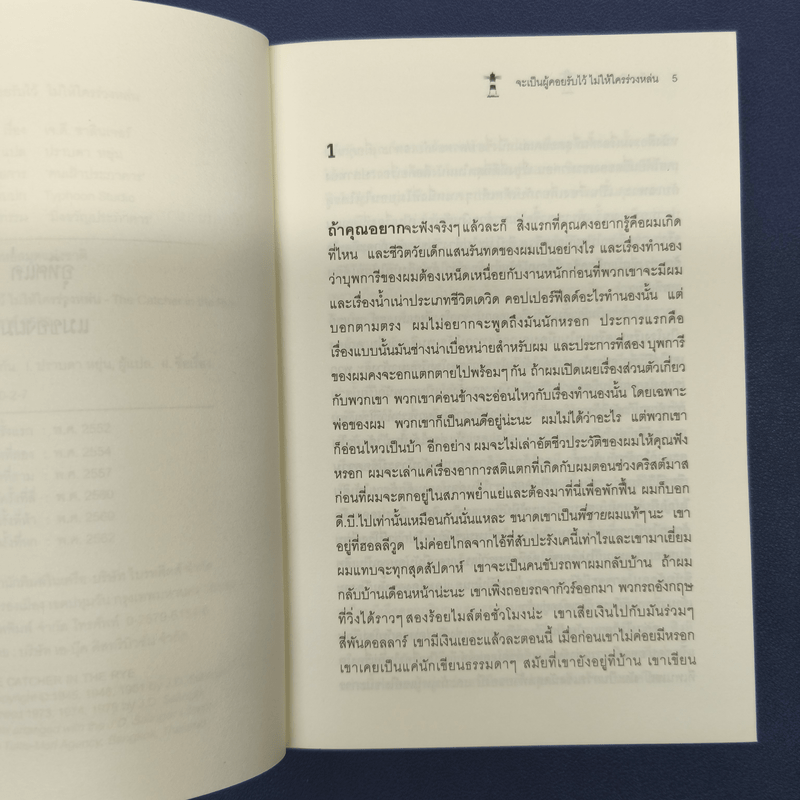 จะเป็นผู้คอยรับไว้ ไม่ให้ใครร่วงหล่น 5
1
ถ้าคุณอยากจะฟังจริงๆ แล้วละก็ สิ่งแรกที่คุณคงอยากรู้คือผมเกิด
ที่ไหน และชีวิตวัยเด็กแสนรันทดของผมเป็นอย่างไร และเรื่องทำนอง
ว่าบุพการีของผมต้องเหน็ดเหนื่อยกับงานหนักก่อนที่พวกเขาจะมีผม
และเรื่องน้ำเน่าประเภทชีวิตเดวิด คอปเปอร์ฟีลด์อะไรทำนองนั้น แต่
บอกตามตรง ผมไม่อยากจะพูดถึงมันนักหรอก ประการแรกคือ
เรื่องแบบนั้นมันช่างน่าเบื่อหน่ายสำหรับผม และประการที่สอง บุพการี
ของผมคงจะอกแตกตายไปพร้อมๆ กัน ถ้าผมเปิดเผยเรื่องส่วนตัวเกี่ยว
กับพวกเขา พวกเขาค่อนข้างจะอ่อนไหวกับเรื่องทำนองนั้น โดยเฉพาะ
พ่อของผม พวกเขาก็เป็นคนดีอยู่น่ะนะ ผมไม่ได้ว่าอะไร แต่พวกเขา
ก็อ่อนไหวเป็นบ้า อีกอย่าง ผมจะไม่เล่าอัตชีวประวัติของผมให้คุณฟัง
หรอก ผมจะเล่าแค่เรื่องอาการสติแตกที่เกิดกับผมตอนช่วงคริสต์มาส
ก่อนที่ผมจะตกอยู่ในสภาพย่ำแย่และต้องมาที่นี่เพื่อพักฟื้น ผมก็บอก
ดี.บี.ไปเท่านั้นเหมือนกันนั่นแหละ ขนาดเขาเป็นพี่ชายผมแท้ๆ นะ เขา
อยู่ที่ฮอลลีวูด ไม่ค่อยไกลจากไอ้ที่สัปปะรังเคนี้เท่าไรและเขามาเยี่ยม
ผมแทบจะทุกสุดสัปดาห์ เขาจะเป็นคนขับรถพาผมกลับบ้าน ถ้าผม
กลับบ้านเดือนหน้าน่ะนะ เขาเพิ่งถอยรถจากัวร์ออกมา พวกรถอังกฤษ
ที่วิ่งได้ราวๆ สองร้อยไมล์ต่อชั่วโมงน่ะ เขาเสียเงินไปกับมันร่วมๆ
สี่พันดอลลาร์ เขามีเงินเยอะแล้วละตอนนี้ เมื่อก่อนเขาไม่ค่อยมีหรอก
เขาเคยเป็นแค่นักเขียนธรรมดาๆ สมัยที่เขายังอยู่ที่บ้าน เขาเขียน